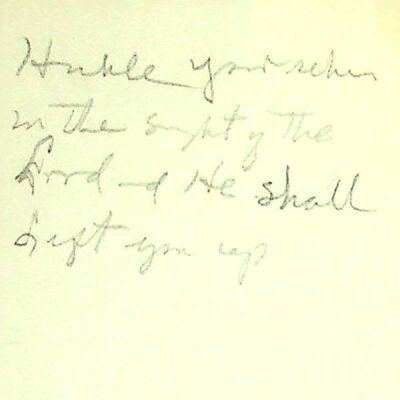 Humble yourselves
in the sight of the
Lord and He shall
lift you up